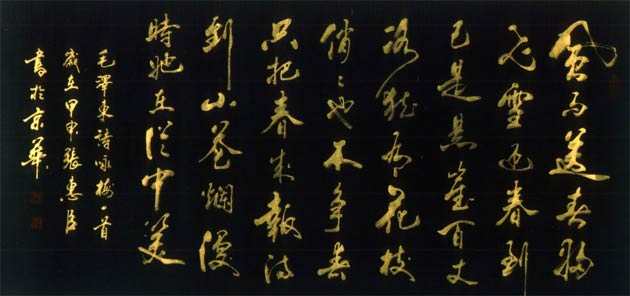 風雨送春歸
飛雪迎春到
已是懸崖百丈
冰猶有花枝
俏〻也不爭春
只把春來報待
到山花爛漫
時她在叢中笑
毛澤東詩詠梅一首
歲在甲申張惠臣
書於京華